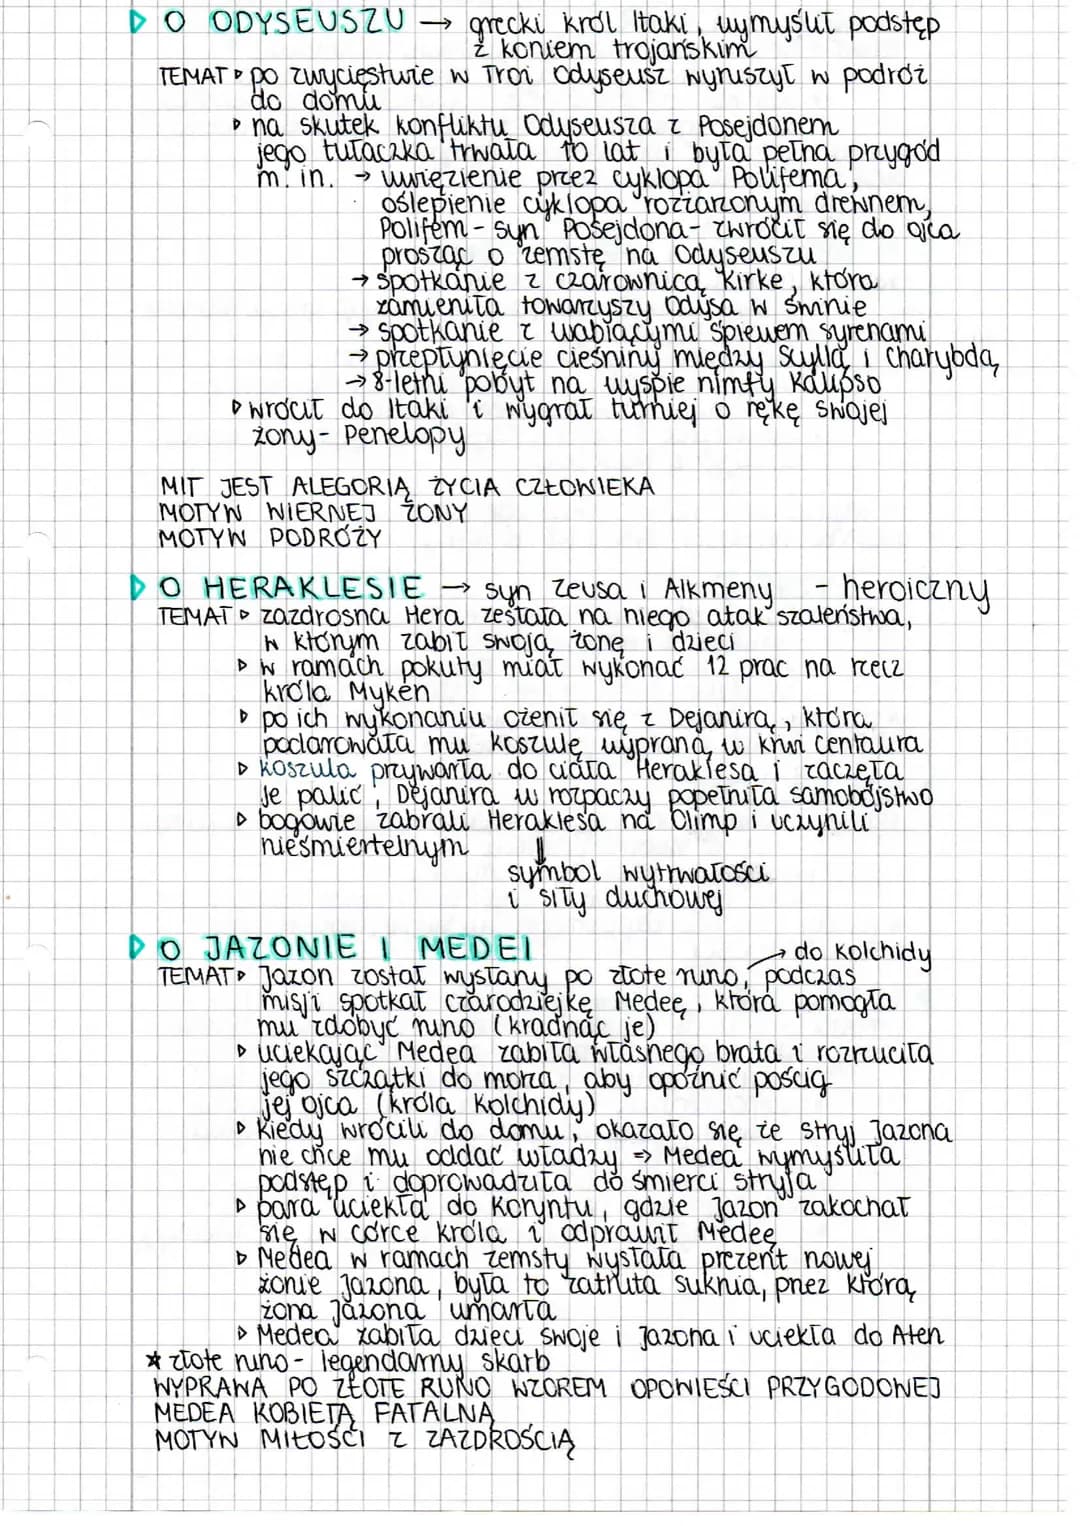 ▷ O ODYSEUSZU → grecki król Itaki, wymyślił podstęp
z koniem trojańskim
TEMAT ▷ po zwycięstwie w Troi Odyseusz wyruszył w podróż
do domu
▷ na skutek konfliktu Odyseusza z Posejdonem
jego tułaczka trwała 10 lat i była pełna przygód
m. in. → uwięzienie przez cyklopa Polifema,
oślepienie cyklopa rozżarzonym drewnem,
Polifem - syn Posejdona - zwrócił się do ojca
prosząc o zemstę na Odyseuszu
→ spotkanie z czarownicą Kirke, która
zamieniła towarzyszy Odysa w świnie
→ spotkanie z wabiącymi śpiewem syrenami
→ przepłynięcie cieśniny między Scyllą i Charybdą
→ 8-letni pobyt na wyspie nimfy Kalipso
▷ wrócił do Itaki i wygrał turniej o rękę swojej
żony - Penelopy
MIT JEST ALEGORIĄ ŻYCIA CZŁOWIEKA
MOTYW WIERNEJ ŻONY
MOTYW PODRÓŻY
▷ O HERAKLESIE → syn Zeusa i Alkmeny - heroiczny
TEMAT ▷ zazdrosna Hera zesłała na niego atak szaleństwa,
w którym zabił swoją żonę i dzieci
▷ w ramach pokuty miał wykonać 12 prac na rzecz
króla Myken
▷ po ich wykonaniu ożenił się z Dejanirą, która
podarowała mu koszulę wypraną w krwi centaura
▷ koszula przywarła do ciała Heraklesa i zaczęła
je palić, Dejanira w rozpaczy popełniła samobójstwo
▷ bogowie zabrali Heraklesa na Olimp i uczynili
nieśmiertelnym ⇓
symbol wytrwałości
i siły duchowej
▷ O JAZONIE I MEDEI
→ do Kolchidy
TEMAT ▷ Jazon został wysłany po złote runo, podczas
misji spotkał czarodziejkę Medeę, która pomogła
mu zdobyć runo (kradnąc je)
▷ uciekając Medea zabiła własnego brata i rozrzuciła
jego szczątki do morza, aby opóźnić pościg
jej ojca (króla Kolchidy)
▷ kiedy wrócili do domu, okazało się że stryj Jazona
nie chce mu oddać władzy ⇒ Medea wymyśliła
podstęp i doprowadziła do śmierci stryja
▷ para uciekła do Koryntu, gdzie Jazon zakochał
się w córce króla i odprawił Medeę
▷ Medea w ramach zemsty wysłała prezent nowej
żonie Jazona, była to zatruta suknia, przez którą
żona Jazona umarła
▷ Medea zabiła dzieci swoje i Jazona i uciekła do Aten
* złote runo - legendarny skarb
WYPRAWA PO ZŁOTE RUNO WZOREM OPOWIEŚCI PRZYGODOWEJ
MEDEA KOBIETĄ FATALNĄ
MOTYW MIŁOŚCI Z ZAZDROŚCIĄ